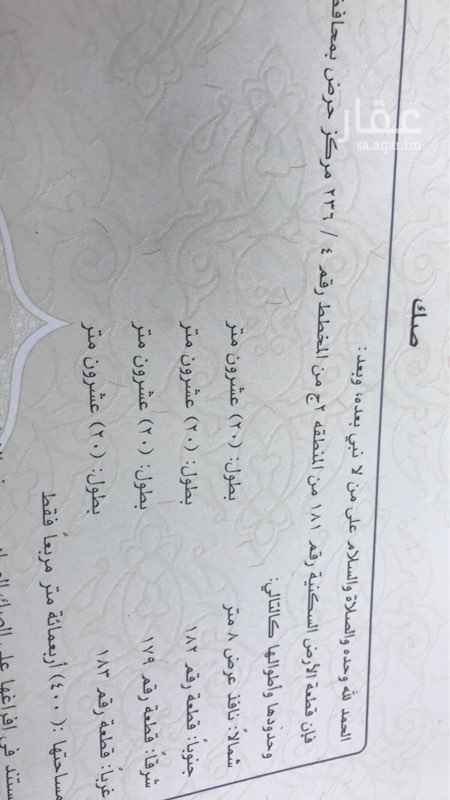 عقار
sa.aqar.fm
صك
الحمد لله وحده والصلاة والسلام على من لا نبي بعده، وبعد:
فإن قطعة الأرض السكنية رقم ١٨١ من المنطقه ٢ج من المخطط رقم ٤ / ٢٣٦ مركز حرض بمحافظ
وحدودها وأطوالها كالتالي:
شمالاً: نافذ عرض ٨ متر بطول: (٢٠) عشرون متر
جنوباً: قطعة رقم ١٨٢ بطول: (٢٠) عشرون متر
شرقاً: قطعة رقم ١٧٩ بطول: (٢٠) عشرون متر
غرباً: قطعة رقم ١٨٣ بطول: (٢٠) عشرون متر
مساحتها :(٤٠٠) أربعمائة متر مربعاً فقط
ستند في إفراغها على الصك